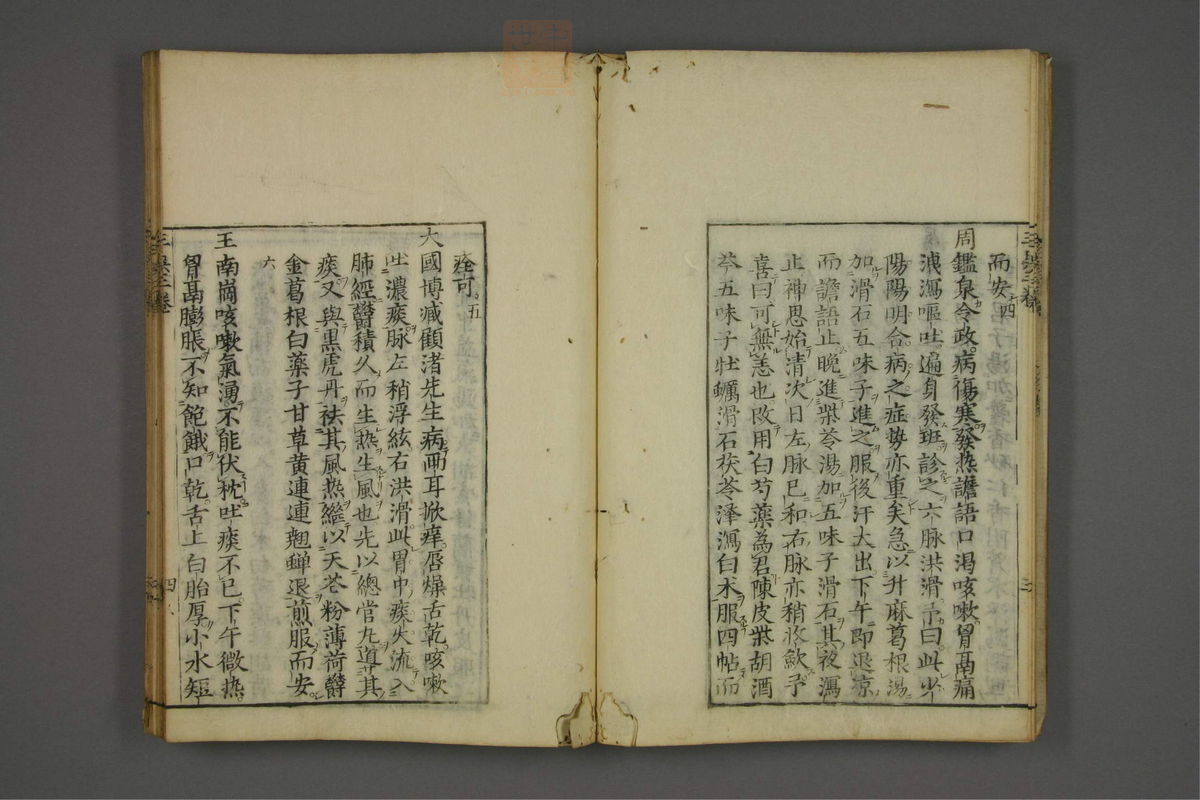 而安 四
周鑑泉令政病傷寒發热譫語口渴咳嗽胷鬲痛
洩瀉嘔吐遍身發班診之六脉洪滑予曰此少
陽陽明合病之症勢亦重矣急以升麻葛根湯
加滑石五味子進之服後汗大出下午即退凉
而譫語止晚進柴苓湯加五味子滑石其夜瀉
止神思始清次日左脉已和右脉亦稍收歛予
喜曰可無恙也改用白芍藥為君陳皮柴胡酒
芩五味子牡蠣滑石茯苓泽瀉白术服四帖而
痊可 五
大國博臧顧渚先生病両耳掀痒唇燥舌乾咳嗽
吐濃痰脉左稍浮絃右洪滑此胃中痰火流入
肺經欝積久而生热生風也先以總管丸導其
痰又與黒虎丹祛其風热繼以天花粉薄荷欝
金葛根白藥子甘草黄連連翹蟬退煎服而安
六
王南崗咳嗽氣湧不能伏枕吐痰不已下午微热
胷鬲膨脹不知飽餓口乾舌上白胎厚小水短
四